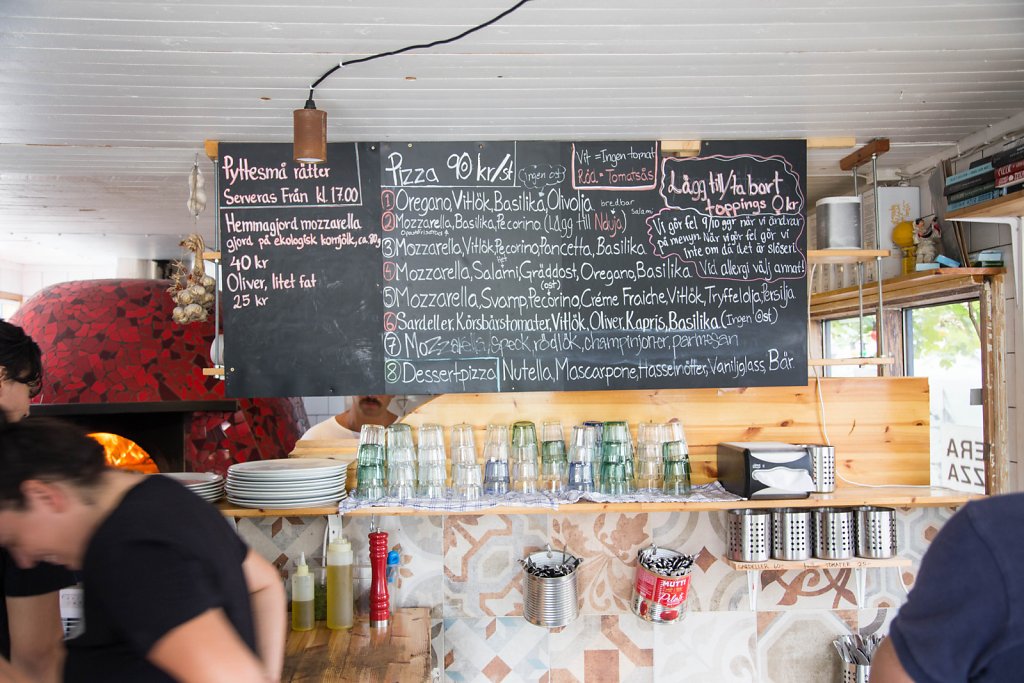 Pyttesmå rätter
Serveras Från kl 17.00
Hemmagjord mozzarella
gjord på ekologisk komjölk, ca. 90g
40 kr
Oliver, litet fat
25 kr
Pizza 90 kr/st
(ingen ost)
Vit = Ingen tomat
Röd = Tomatsås
① Oregano, Vitlök, Basilika, Olivolja
bredbar
salami
② Mozzarella, Basilika, Pecorino (Lägg till Nduja)
③ Mozzarella, Vitlök, Pecorino, Pancetta, Basilika
④ Mozzarella, Salami, Gräddost, Oregano, Basilika
(ost)
⑤ Mozzarella, Svamp, Pecorino, Créme Fraiche, Vitlök, Tryffelolja, Persilja
⑥ Sardeller, Körsbärstomater, Vitlök, Oliver, Kapris, Basilika (Ingen Ost)
⑦ Mozzarella, speck, rödlök, champinjoner, parmesan
⑧ Dessertpizza Nutella, Mascarpone, Hasselnötter, Vaniljglass, Bär
Lägg till/ta bort
toppings 0 kr
Vi gör fel 9/10 ggr när vi ändrar
på menyn. När vi gör fel gör vi
inte om då det är slöseri.
Vid allergi välj annat!
ERA
ZZA
SARDELLER
TOMATER 25:-
MUTTI
Pelati